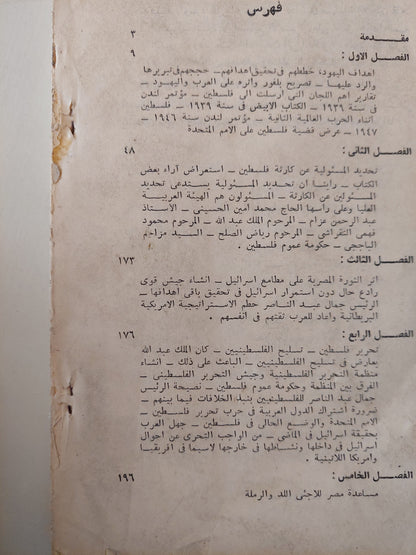 فهرس
مقدمة ٣
الفصل الاول : ٩
اهداف اليهود، خططهم فى تحقيق اهدافهم — حججهم فى تبريرها
والرد عليها — تصريح بلفور واثره على العرب واليهود —
تقارير اهم اللجان التى ارسلت الى فلسطين — مؤتمر لندن
فى سنة ١٩٣٩ — الكتاب الابيض فى سنة ١٩٣٩ — فلسطين
اثناء الحرب العالمية الثانية — مؤتمر لندن سنة ١٩٤٦ —
١٩٤٧ — عرض قضية فلسطين على الامم المتحدة
الفصل الثانى : ٤٨
تحديد المسئولية عن كارثة فلسطين — استعراض آراء بعض
الكتاب — راينا ان تحديد المسئولية يستدعى تحديد
المسئولين عن الكارثة — المسئولون هم الهيئة العربية
العليا وعلى رأسها الحاج محمد أمين الحسينى — الاستاذ
عبد الرحمن عزام — المرحوم الملك عبد الله — المرحوم محمود
فهمى النقراشى — المرحوم رياض الصلح — السيد مزاحم
الباججى — حكومة عموم فلسطين .
الفصل الثالث : ١٧٣
اثر الثورة المصرية على مطامع اسرائيل — انشاء جيش قوى
رادع حال دون استمرار اسرائيل فى تحقيق باقى أهدافها —
الرئيس جمال عبد الناصر حطم الاستراتيجية الامريكية
البريطانية واعاد للعرب ثقتهم فى انفسهم .
الفصل الرابع : ١٧٦
تحرير فلسطين — تسليح الفلسطينيين — كان الملك عبد الله
يعارض فى تسليح الفلسطينيين — الباعث على ذلك — انشاء
منظمة التحرير الفلسطينية وجيش التحرير الفلسطينى —
الفرق بين المنظمة وحكومة عموم فلسطين — نصيحة الرئيس
جمال عبد الناصر للفلسطينيين بنبذ الخلافات فيما بينهم —
ضرورة اشتراك الدول العربية فى حرب تحرير فلسطين —
الامم المتحدة والوضع الحالى فى فلسطين — جهل العرب
بحقيقة اسرائيل فى الماضى — من الواجب التحرى عن احوال
اسرائيل فى داخلها ونشاطها فى خارجها لاسيما فى افريقيا
وامريكا اللاتينية .
الفصل الخامس : ١٩٦
مساعدة مصر للاجئى اللد والرملة